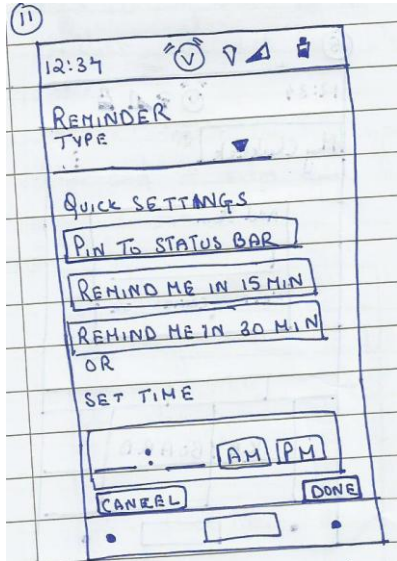 11
12:34
REMINDER
TYPE
QUICK SETTINGS
PIN TO STATUS BAR
REMIND ME IN 15 MIN
REMIND ME IN 30 MIN
OR
SET TIME
__ : __ AM PM
CANCEL DONE